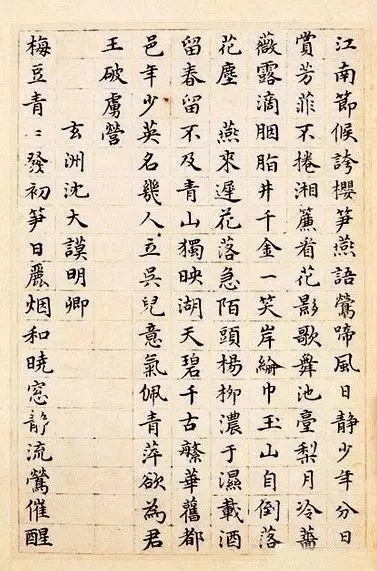 江南節候誇櫻笋燕語鶯啼風日靜少年分日
賞芳菲不捲湘簾看花影歌舞池臺梨月冷薔
薇露滴胭脂井千金一笑岸綸巾玉山自倒落
花塵　燕來遲花落急陌頭楊柳濃于濕載酒
留春留不及青山獨映湖天碧千古繁華舊都
邑年少英名幾人立吳兒意氣佩青萍欲為君
王破虜營
玄洲沈大謨明卿
梅豆青〻發初笋日麗烟和曉窓靜流鶯催醒